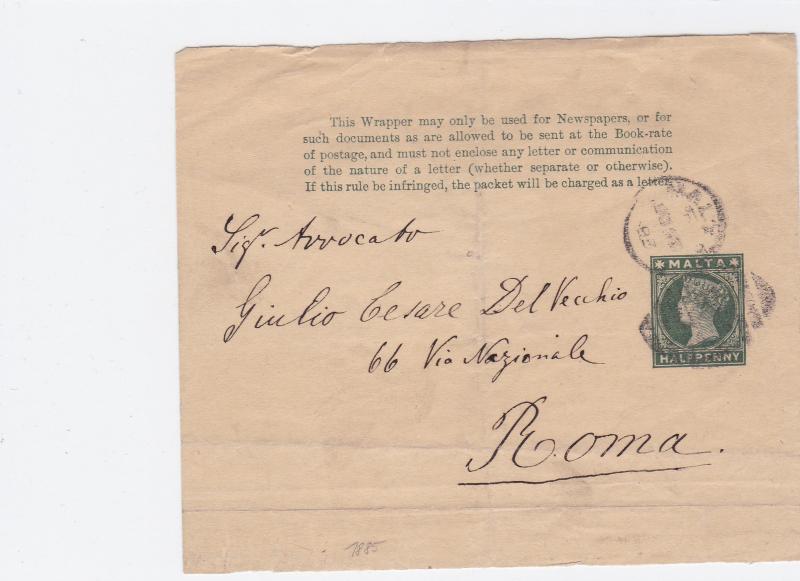 This Wrapper may only be used for Newspapers, or for
such documents as are allowed to be sent at the Book-rate
of postage, and must not enclose any letter or communication
of the nature of a letter (whether separate or otherwise).
If this rule be infringed, the packet will be charged as a letter.
Sigr. Avvocato
MALTA
Giulio Cesare Del Vecchio
66 Via Nazionale
HALFPENNY
Roma.
1885